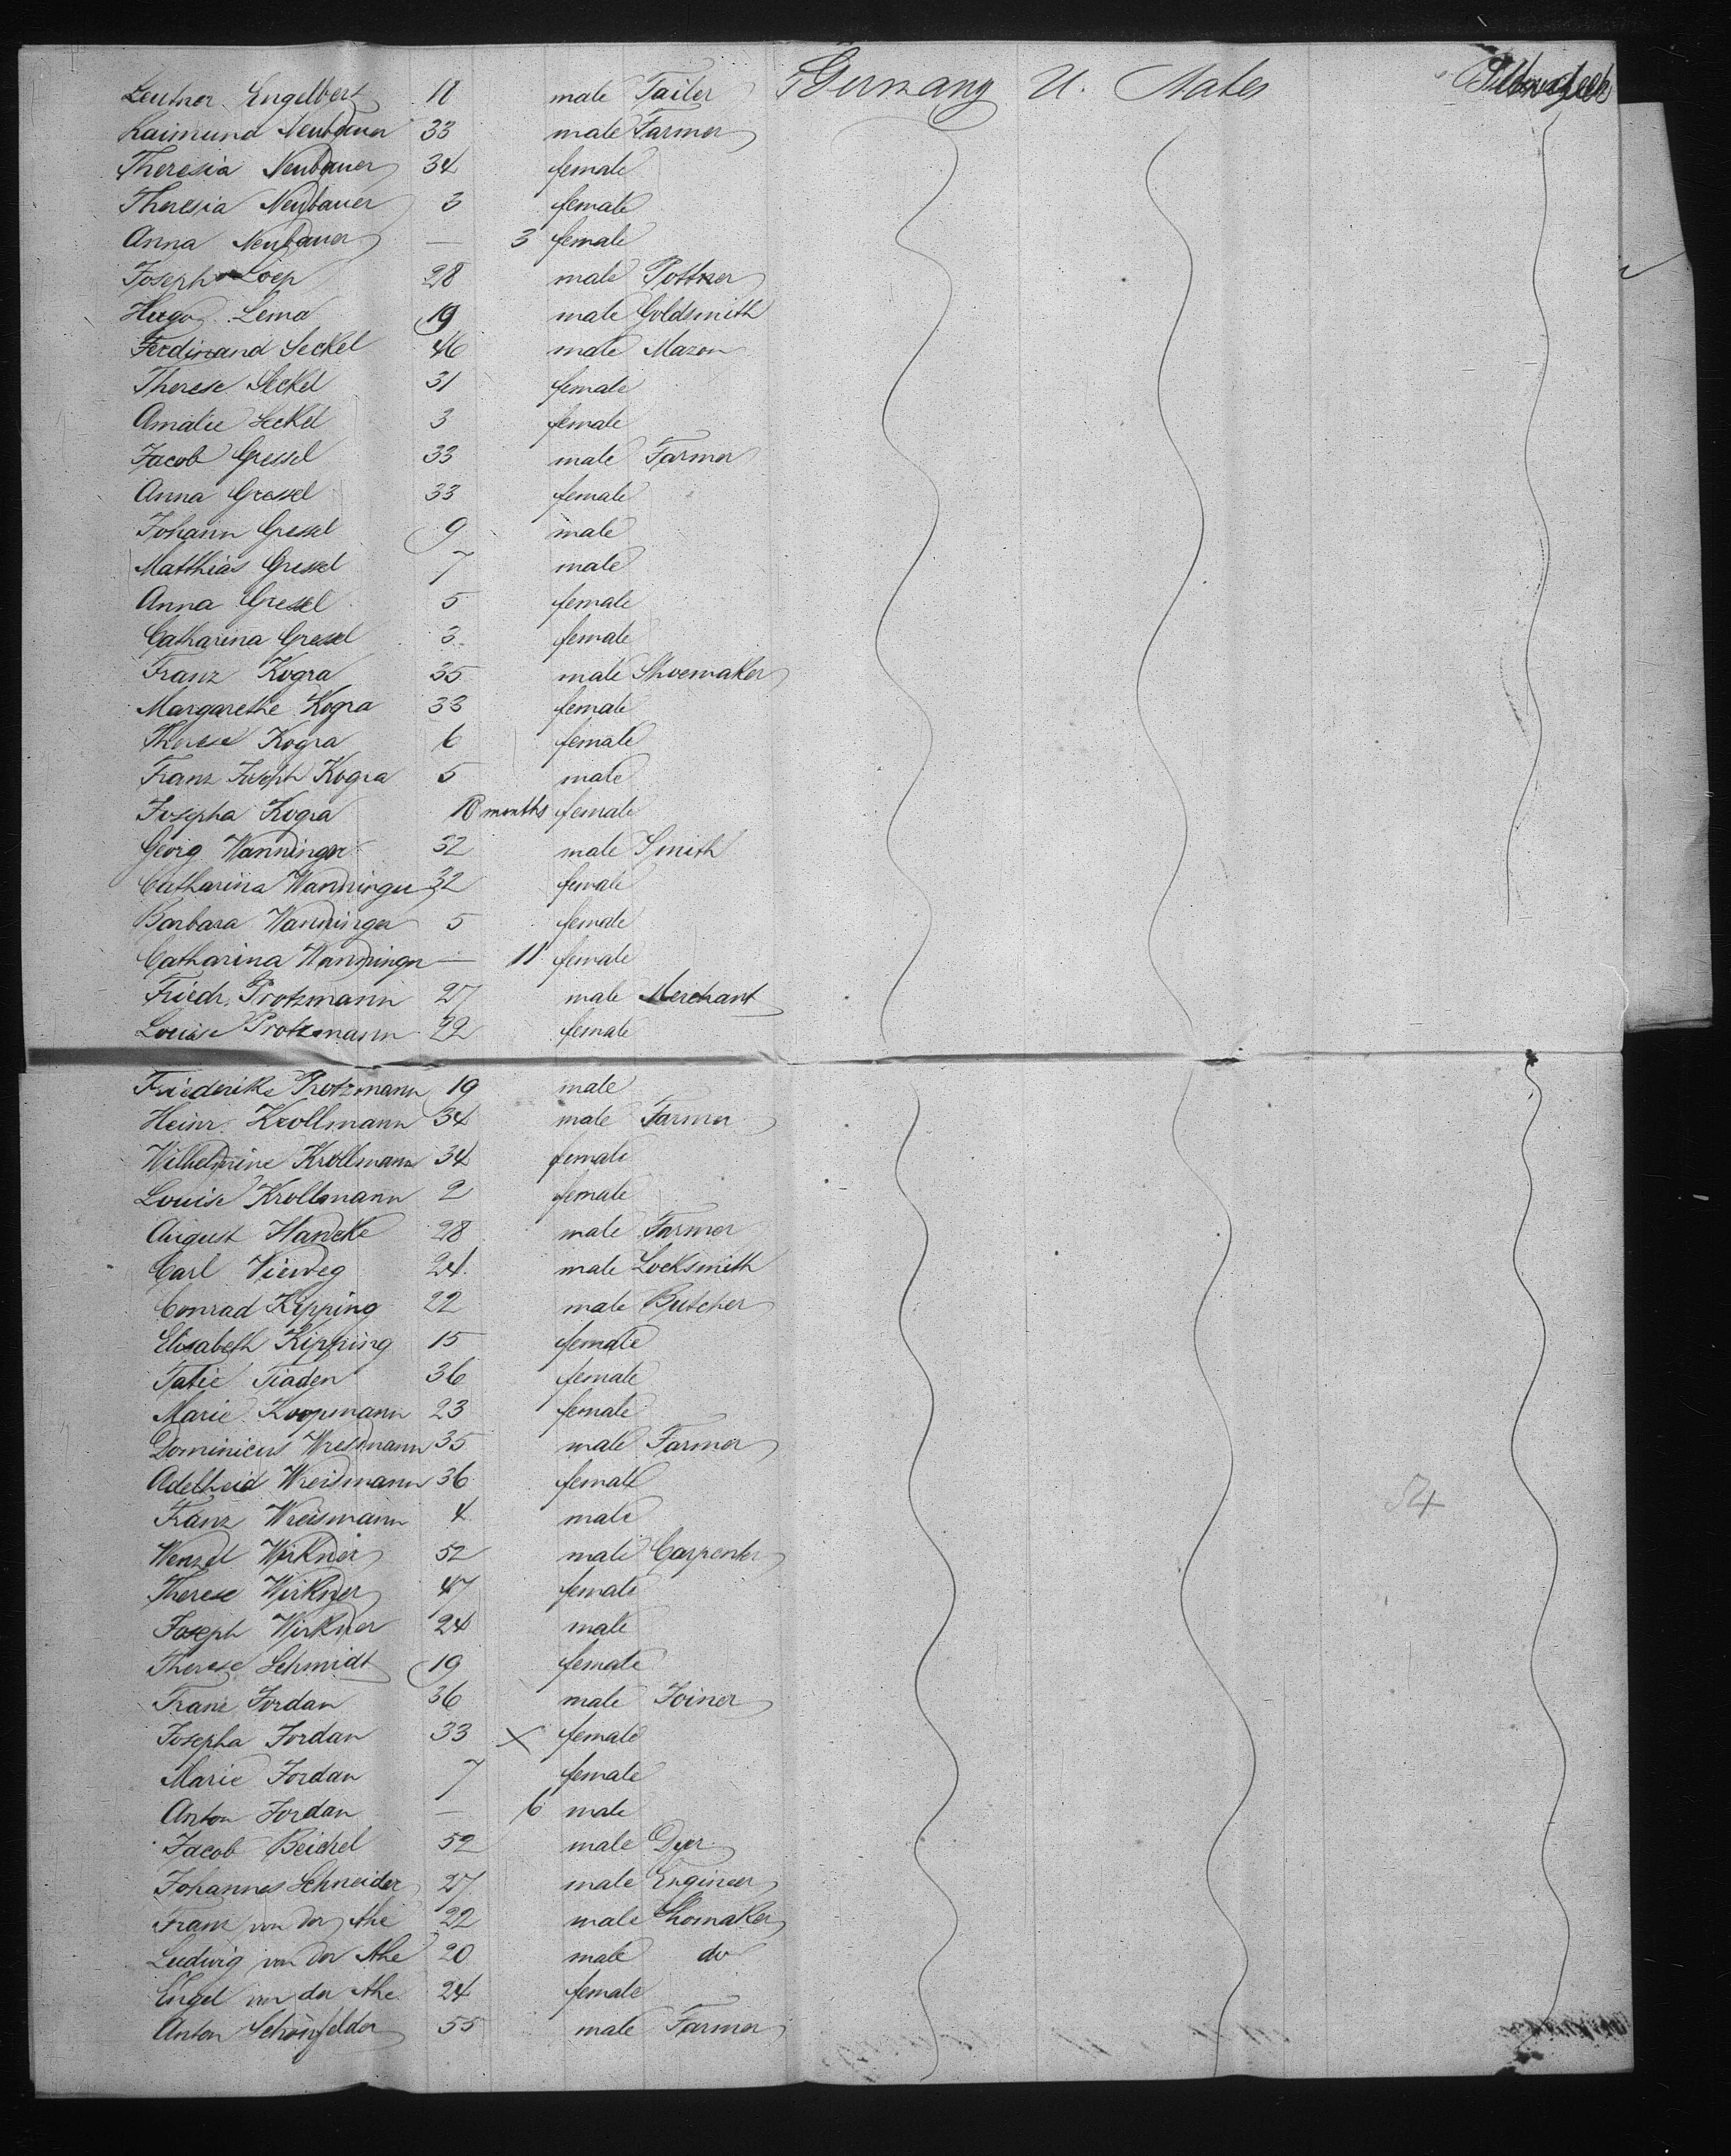 Leutner Engelbert 18 male Tailer Germany U. States
Raimund Neubauer 33 male Farmer
Theresia Neubauer 34 female
Theresia Neubauer 3 female
Anna Neubauer — 3 female
Joseph Loep 28 male Pottner
Hugo Lema 19 male Goldsmith
Ferdinand Seckel 46 male Mazon
Therese Seckel 31 female
Amalie Seckel 3 female
Jacob Gressel 33 male Farmer
Anna Gressel 33 female
Johann Gressel 9 male
Matthias Gressel 7 male
Anna Gressel 5 female
Catharina Gressel 3 female
Franz Kogra 35 male Shoemaker
Margarethe Kogra 33 female
Therese Kogra 6 female
Franz Joseph Kogra 5 male
Josepha Kogra 10 months female
Georg Wanninger 32 male Smith
Catharina Wanninger 32 female
Barbara Wanninger 5 female
Catharina Wanninger — 11 female
Friedr. Protzmann 27 male Merchant
Louise Protzmann 22 female
Friederike Protzmann 19 male
Heinr. Krollmann 34 male Farmer
Wilhelmine Krollmann 34 female
Louise Krollmann 2 female
August Hancke 28 male Farmer
Carl Vieweg 24 male Locksmith
Conrad Kipping 22 male Butcher
Elisabeth Kipping 15 female
Tatie Tiaden 36 female
Marie Koopmann 23 female
Dominicus Wresmann 35 male Farmer
Adelheid Wreismann 36 female
Franz Wreismann 4 male
54
Wenzel Wirkner 52 male Carpenter
Therese Wirkner 47 female
Joseph Wirkner 24 male
Therese Schmidt 19 female
Franz Jordan 36 male Joiner
Josepha Jordan 33 × female
Marie Jordan 7 female
Anton Jordan — 6 male
Jacob Beickel 52 male Dyer
Johannes Schneider 27 male Engineer
Franz von der Ahe 22 male Shomaker
Ludwig von der Ahe 20 male do
Engel von der Ahe 24 female
Anton Schönfelder 55 male Farmer